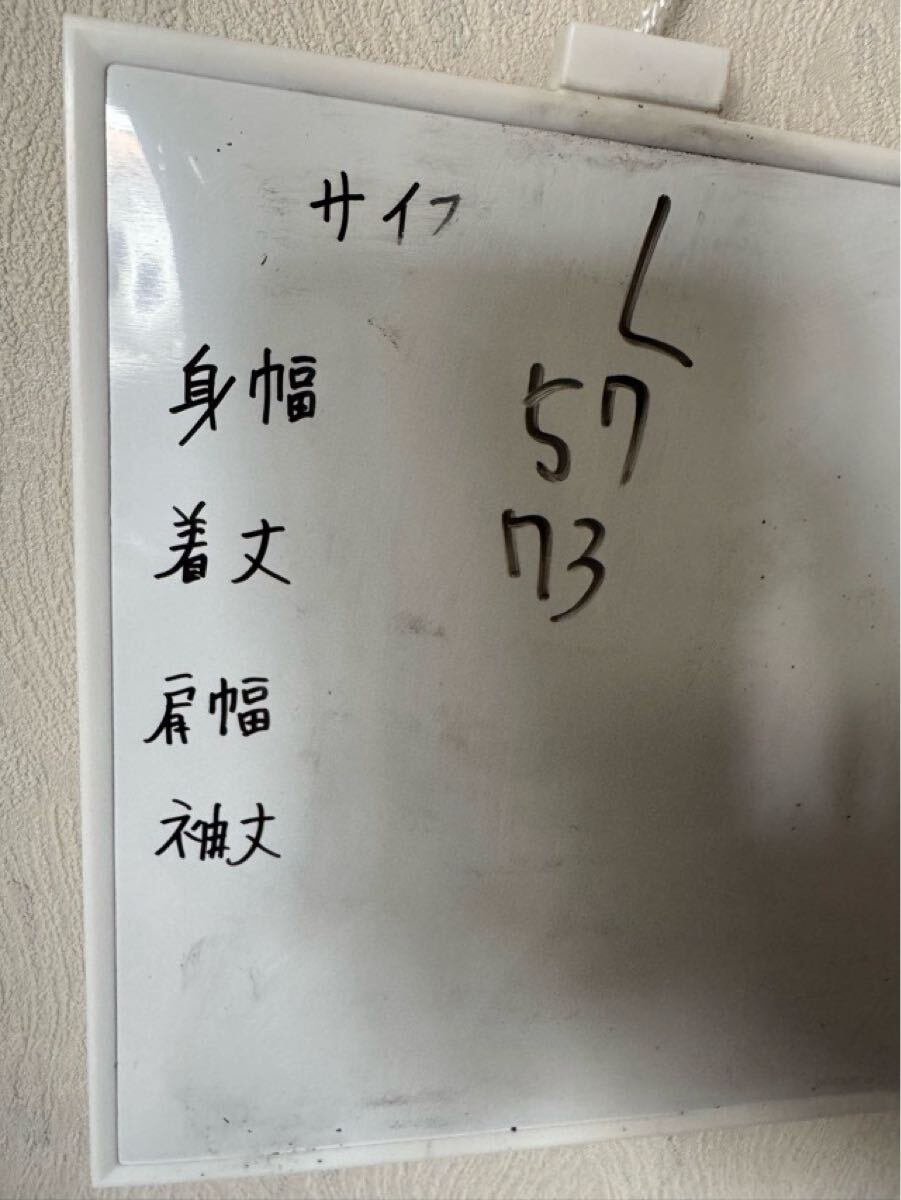 サイフ L
身幅 57
着丈 73
肩幅
袖丈